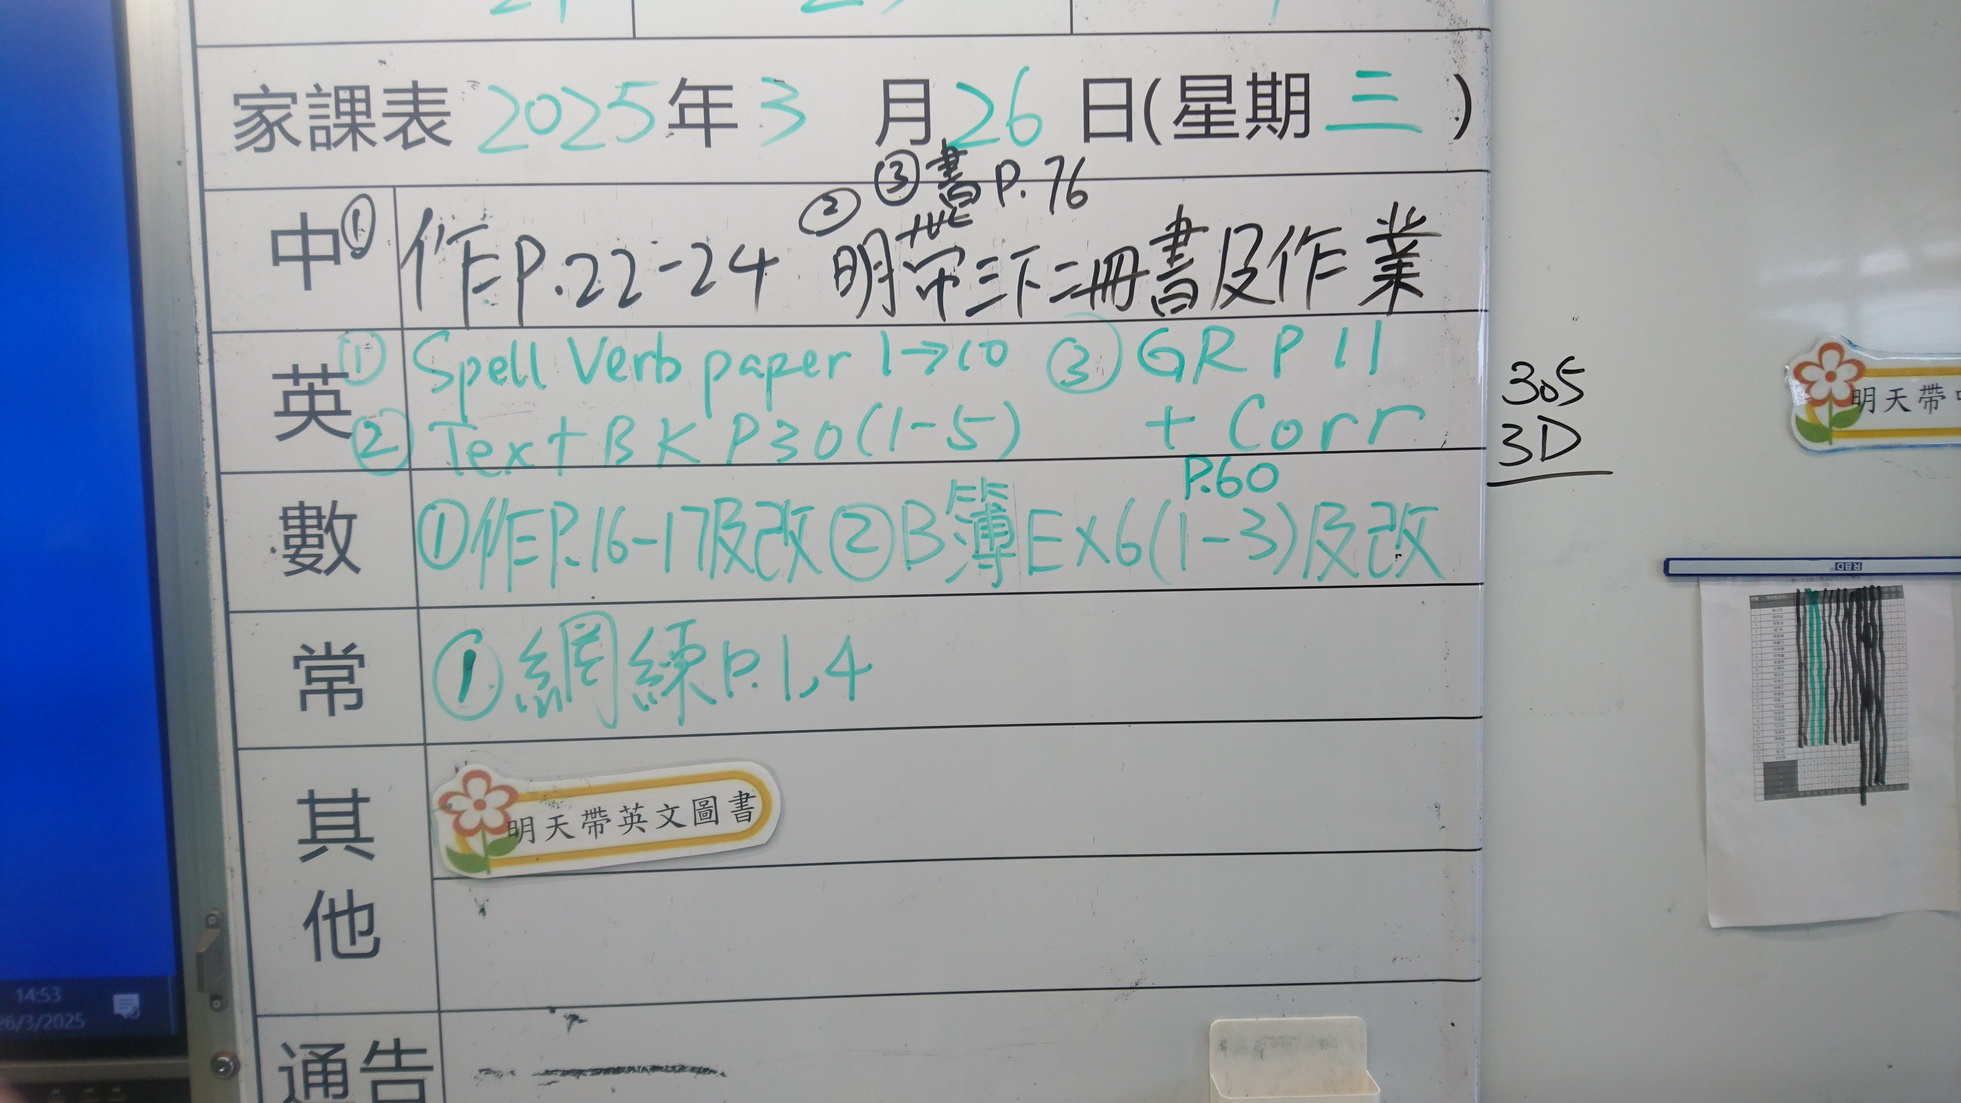 家課表 2025年3月26日(星期三)
③書P.76
中 ①作P.22-24 ②明帶三下二冊書及作業
英 ①Spell Verb paper 1→10 ③GR P11
②Text BK P30(1-5) + Corr
P.60
數 ①作P.16-17及改②B簿Ex6(1-3)及改
常 ①網練P.1,4
其他 明天帶英文圖書
通告
305
3D
明天帶
RBD
14:53
26/3/2025